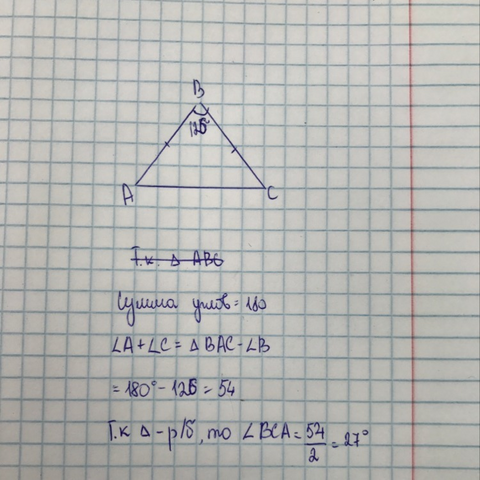 B
126°
A
C
Т.к. Δ ABC
Сумма углов = 180
∠A+∠C = Δ BAC - ∠B
= 180° - 126 = 54
Т.к Δ - р/б, то ∠BCA = 54/2 = 27°